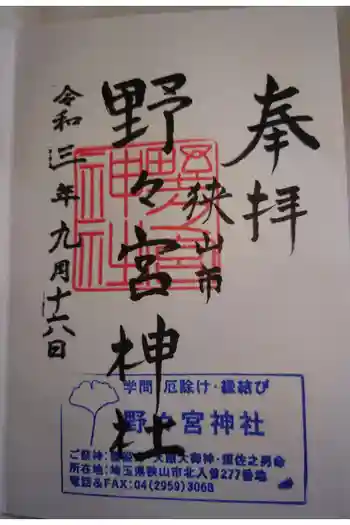 奉拝
狭山市
野々宮神社
令和三年九月十六日
野々宮神社
学問・厄除け・縁結び
野々宮神社
ご祭神:天照大御神・須佐之男命
所在地:埼玉県狭山市北入曽277番地
電話&FAX:04(2959)3068